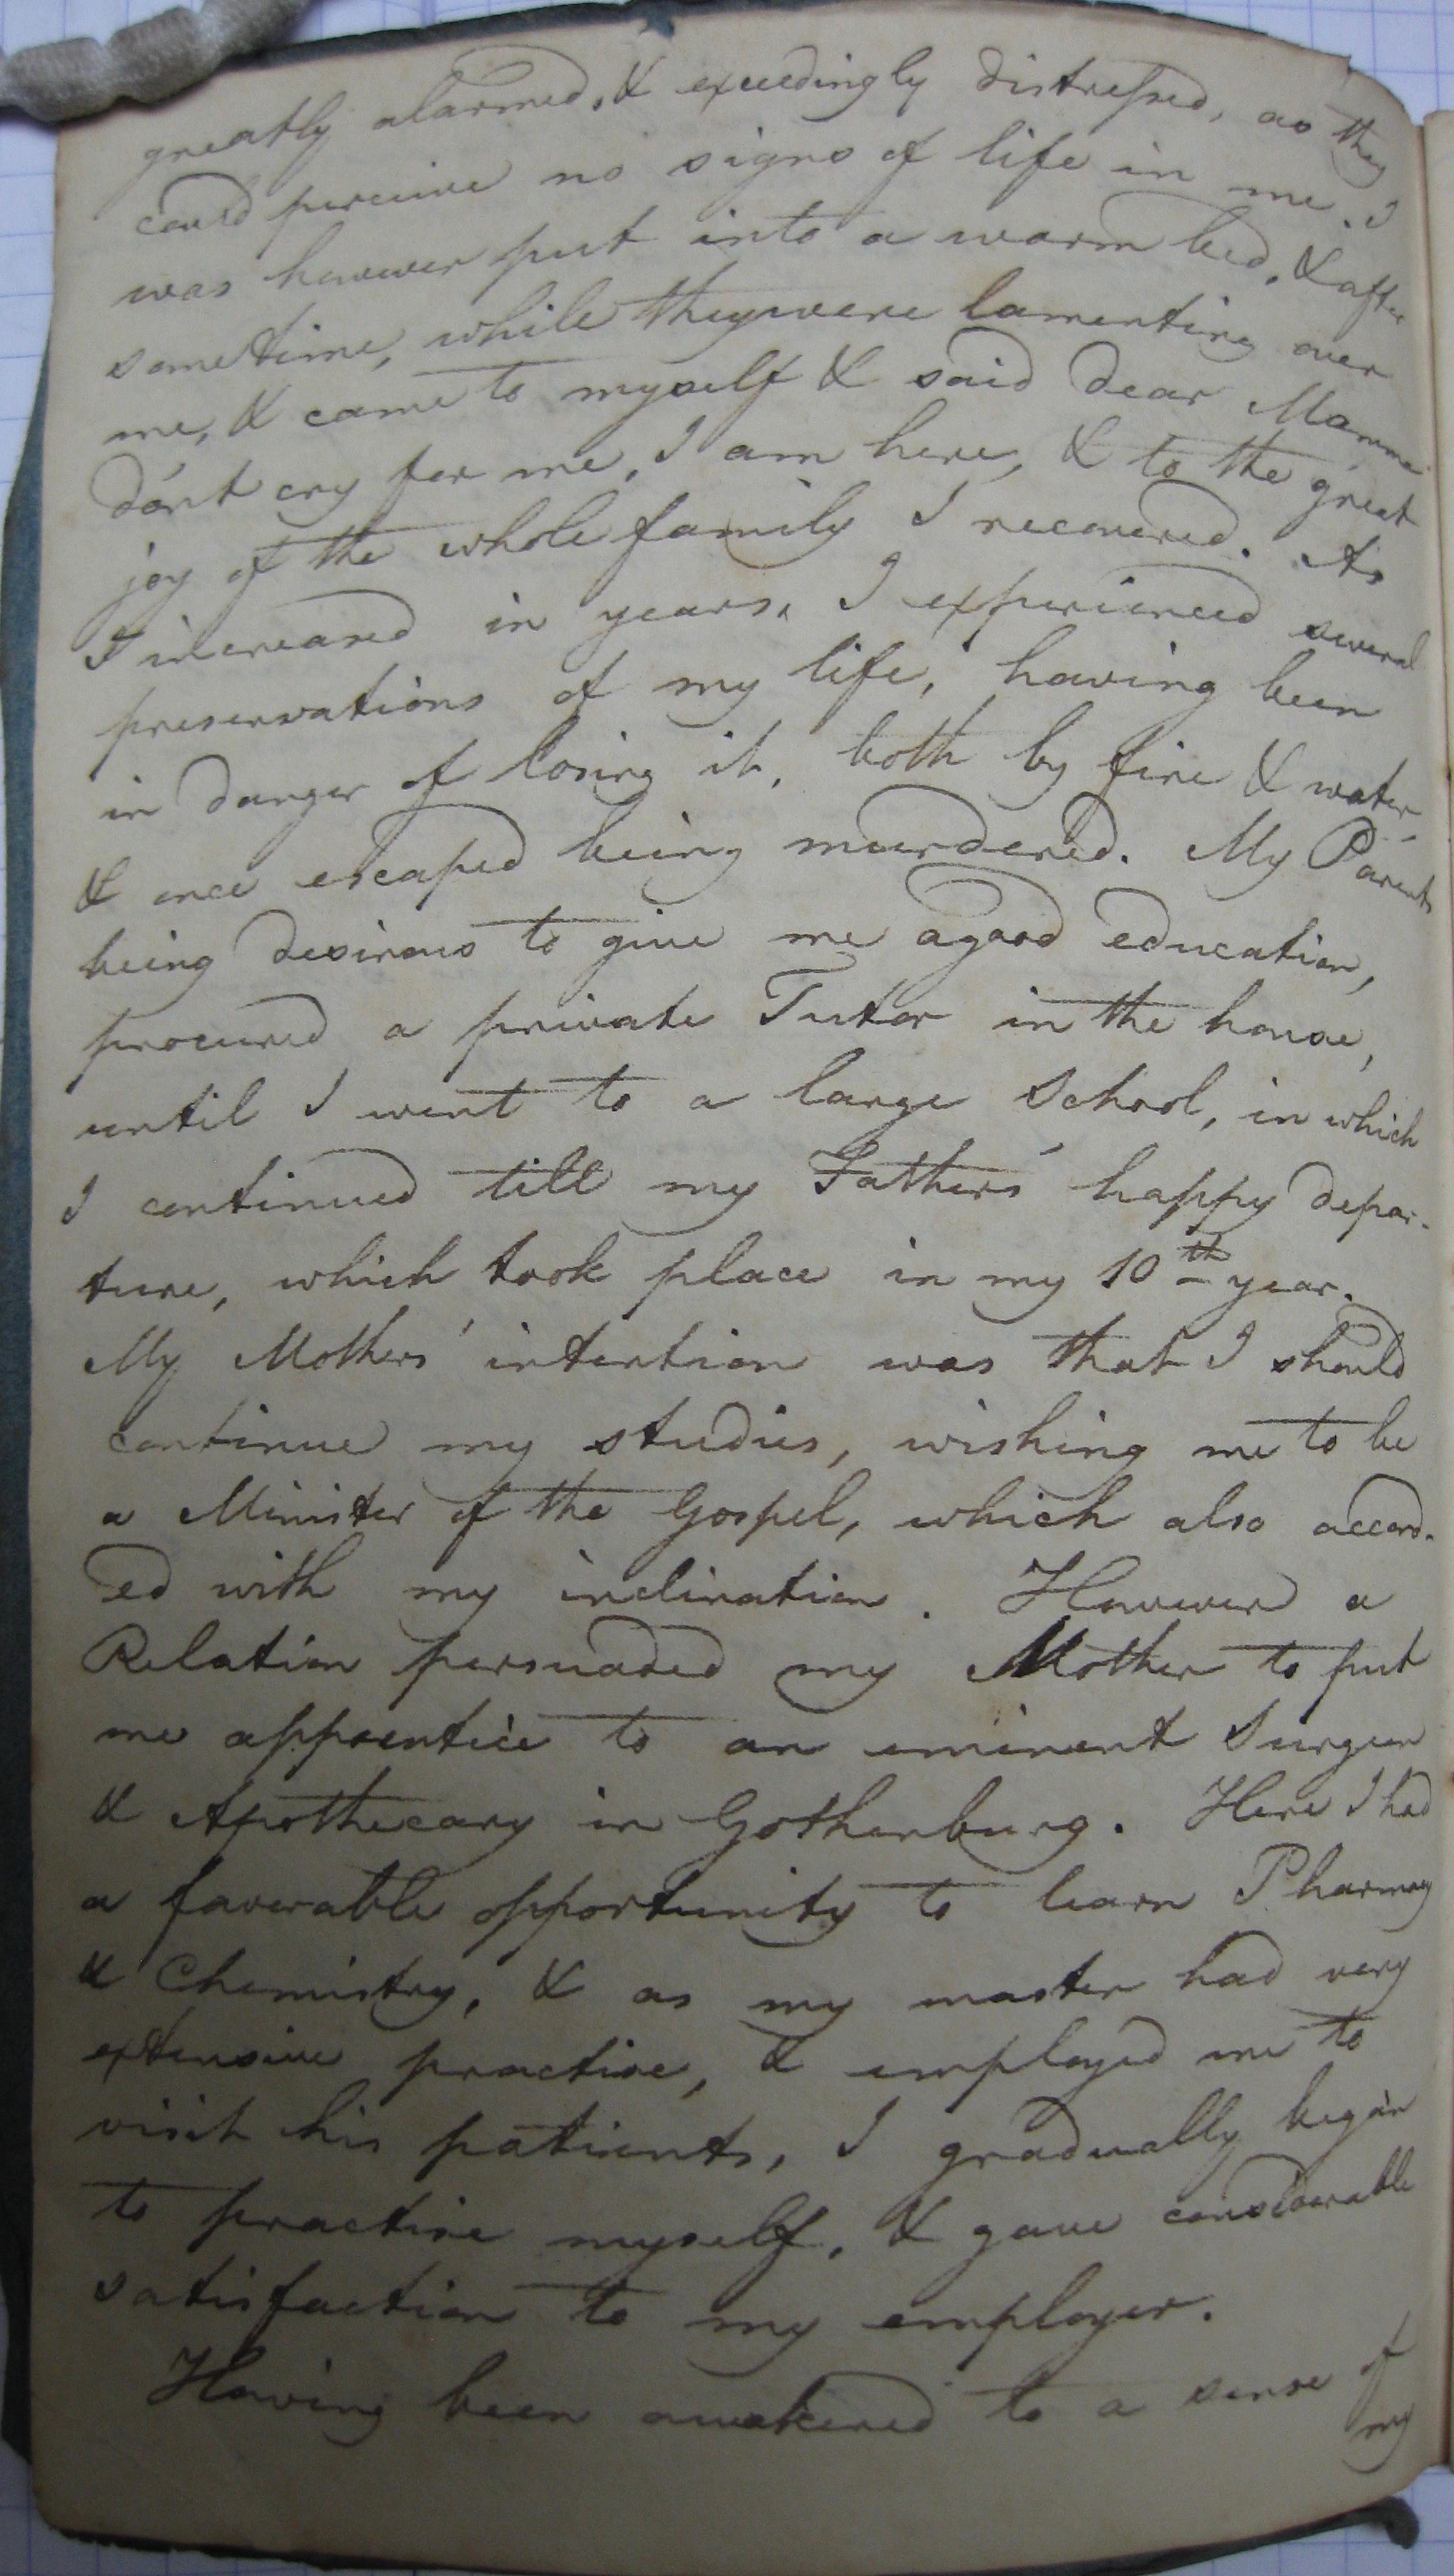 greatly alarmed, & exceedingly distressed, as they
could perceive no signs of life in me. I
was however put into a warm bed, & after
sometime, while they were lamenting over
me, & came to myself & said dear Mamma
dón't cry for me, I am here, & to the great
joy of the whole family I recovered. As
I increased in years, I experienced several
preservations of my life, having been
in danger of losing it, both by fire & water,
& once escaped being murdered. My Parents
being desirous to give me a good education,
procured a private Tutor in the house,
until I went to a large School, in which
I continued till my Fathers' happy depar-
ture, which took place in my 10th year.
My Mothers' intention was that I should
continue my studies, wishing me to be
a Minister of the Gospel, which also accord-
ed with my inclination. However a
Relation persuaded my Mother to put
me apprentice to an eminent Surgeon
& Apothecary in Gothenburg. Here I had
a favorable opportunity to learn Pharmacy
& Chemistry, & as my master had very
extensive practise, & employed me to
visit his patients, I gradually began
to practise myself, & gave considerable
satisfaction to my employer.
Having been awakened to a sense of
my